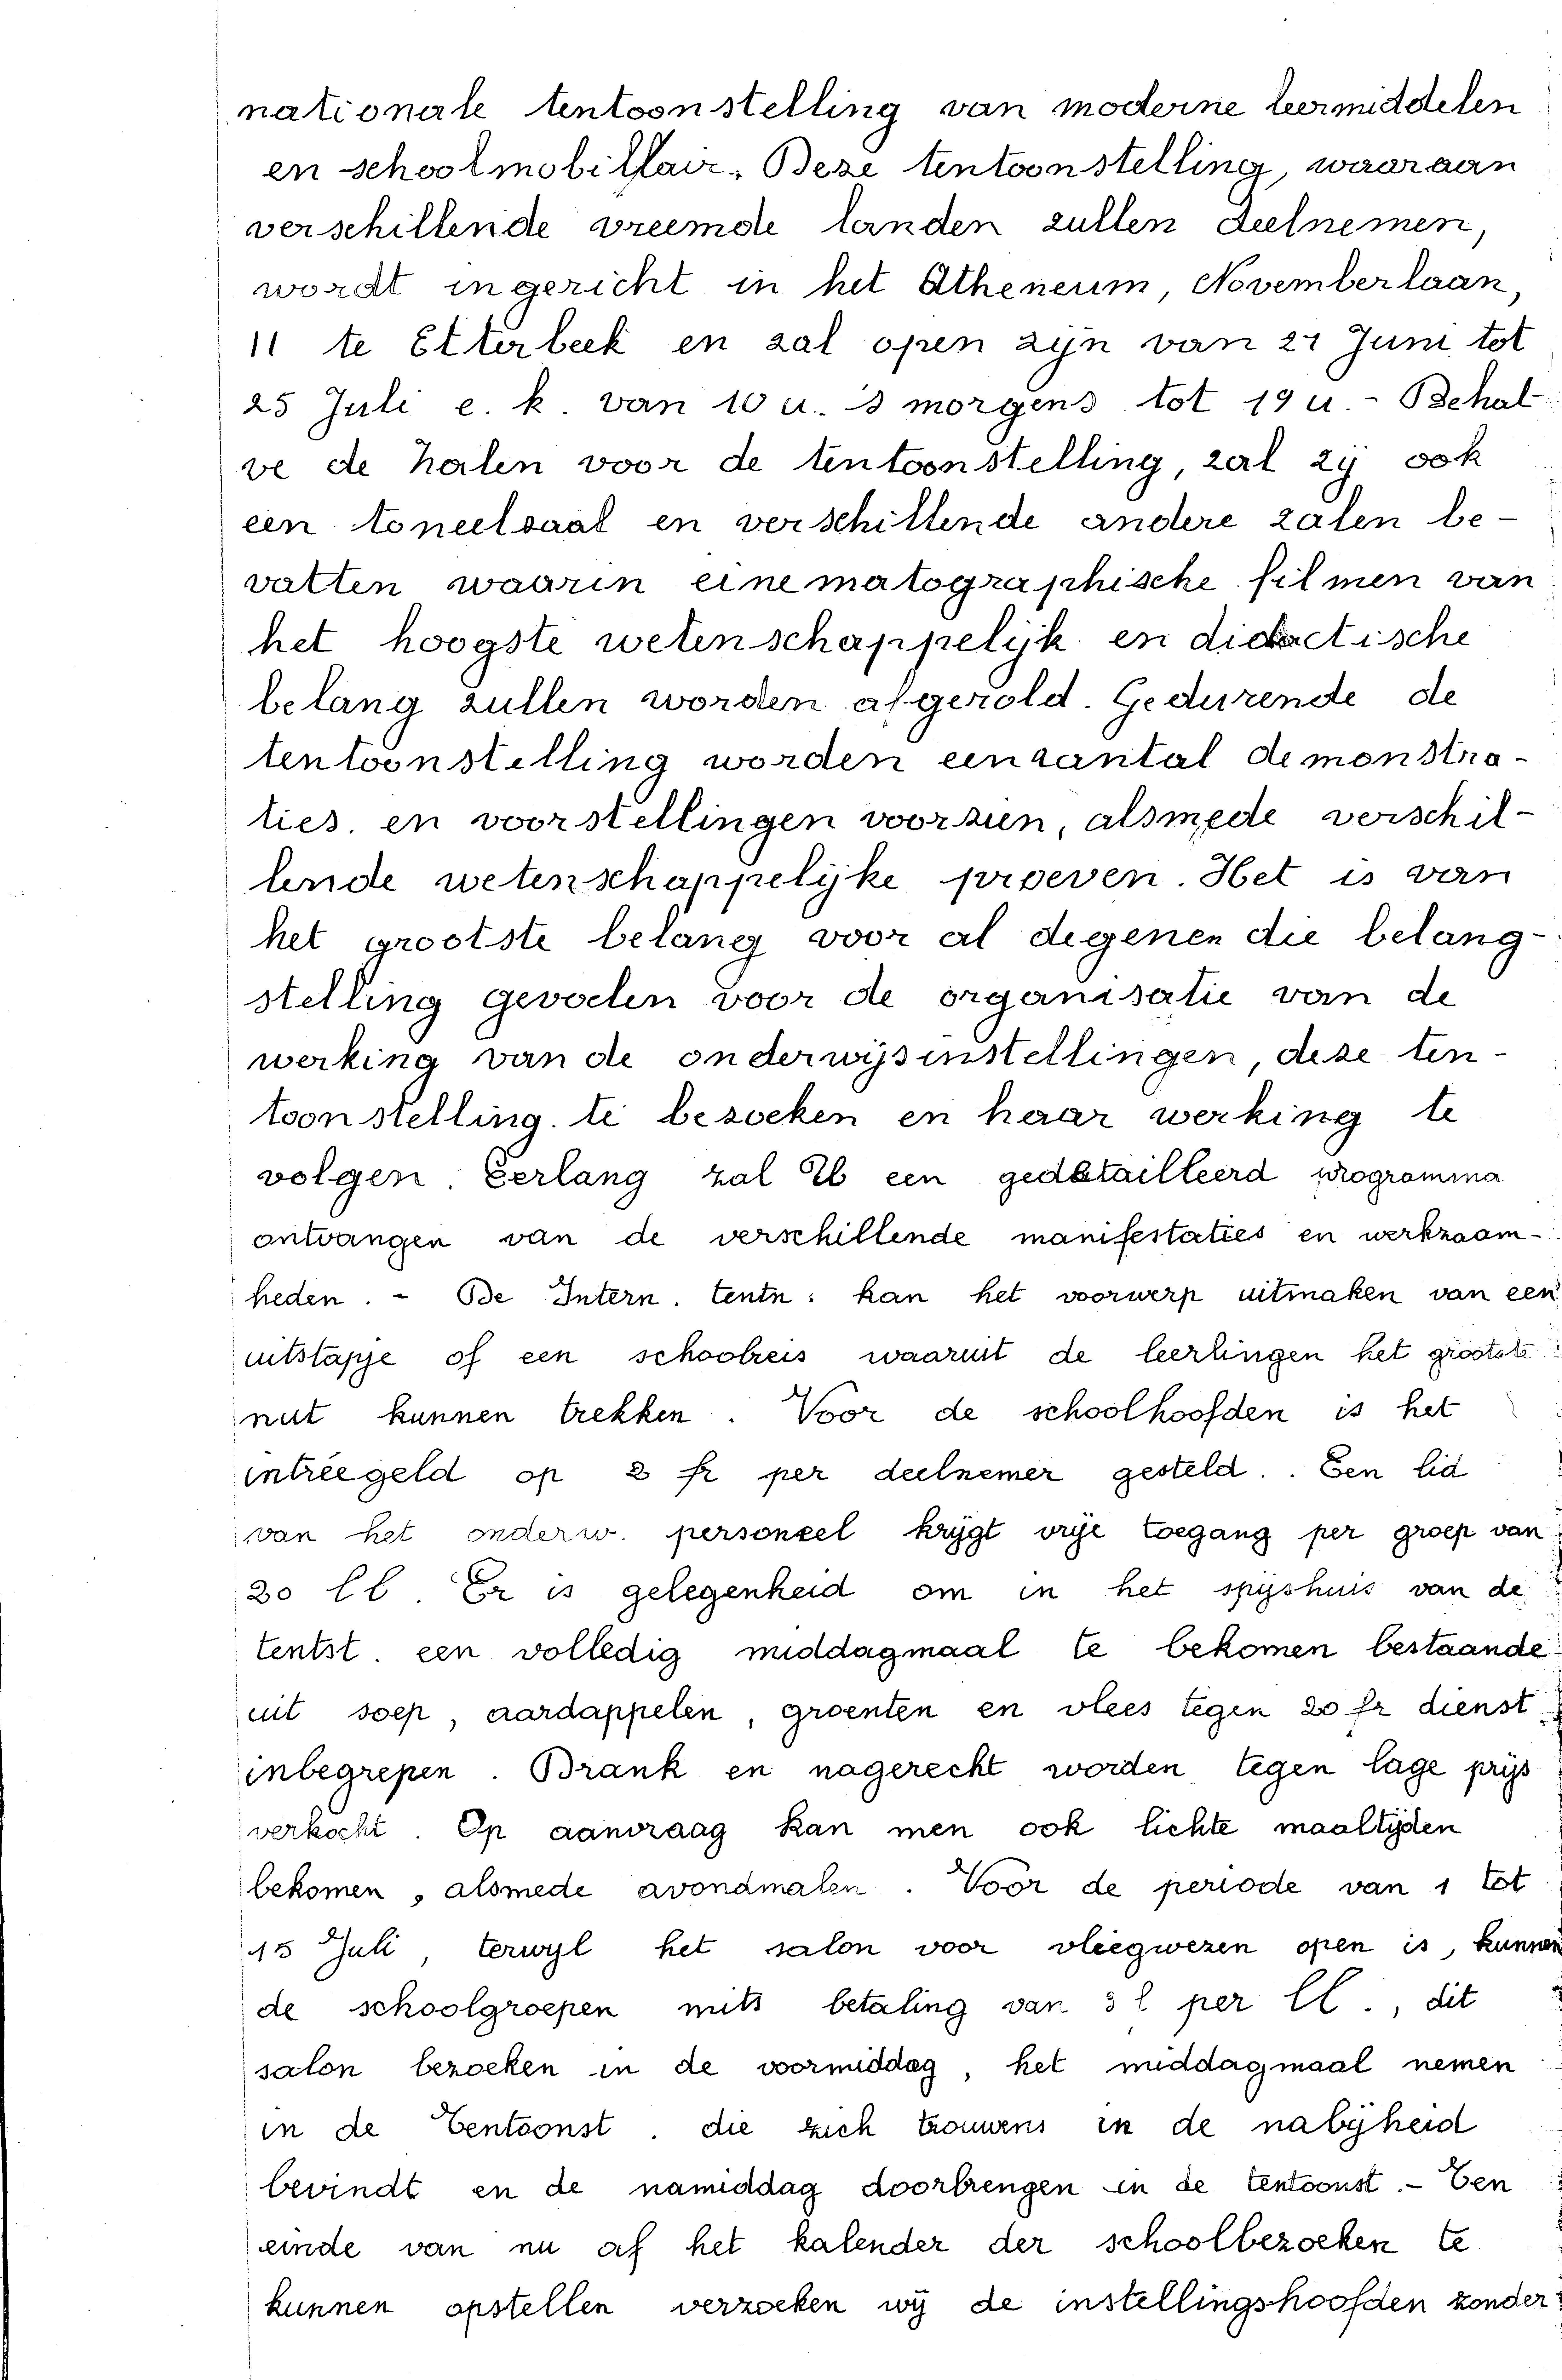 nationale tentoonstelling van moderne leermiddelen
en schoolmobillair. Deze tentoonstelling, waaraan
verschillende vreemde landen zullen deelnemen,
wordt ingericht in het Atheneum, Novemberlaan,
11 te Etterbeek en zal open zyn van 21 Juni tot
25 Juli e. k. van 10 u. 's morgens tot 19 u. - Behal-
ve de halen voor de tentoonstelling, zal zy ook
een toneelzaal en verschillende andere zalen be-
vatten waarin cinematographische filmen van
het hoogste wetenschappelijk en didactische
belang zullen worden afgerold. Gedurende de
tentoonstelling worden een aantal demonstra-
ties en voorstellingen voorzien, alsmede verschil-
lende wetenschappelijke proeven. Het is van
het grootste belang voor al degenen die belang-
stelling gevoelen voor de organisatie van de
werking van de onderwijsinstellingen, deze ten-
toonstelling te bezoeken en haar werking te
volgen. Eerlang zal U een gedetailleerd programma
ontvangen van de verschillende manifestaties en werkzaam-
heden. - De Intern. tentn. kan het voorwerp uitmaken van een
uitstapje of een schoolreis waaruit de leerlingen het grootste
nut kunnen trekken. Voor de schoolhoofden is het
intreegeld op 2 fr per deelnemer gesteld.. Een lid
van het onderw. personeel krygt vrye toegang per groep van
20 ll. Er is gelegenheid om in het spyshuis van de
tentst. een volledig middagmaal te bekomen bestaande
uit soep, aardappelen, groenten en vlees tegen 20 fr dienst
inbegrepen. Drank en nagerecht worden tegen lage prijs
verkocht. Op aanvraag kan men ook lichte maaltijden
bekomen, alsmede avondmalen. Voor de periode van 1 tot
15 Juli, terwyl het salon voor vliegwezen open is, kunnen
de schoolgroepen mits betaling van 3 l per ll., dit
salon bezoeken in de voormiddag, het middagmaal nemen
in de Tentoonst. die zich trouwens in de nabyheid
bevindt en de namiddag doorbrengen in de tentoonst. - Ten
einde van nu af het kalender der schoolbezoeken te
kunnen opstellen verzoeken wij de instellingshoofden zonder